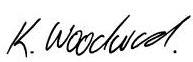 K. Woodward.